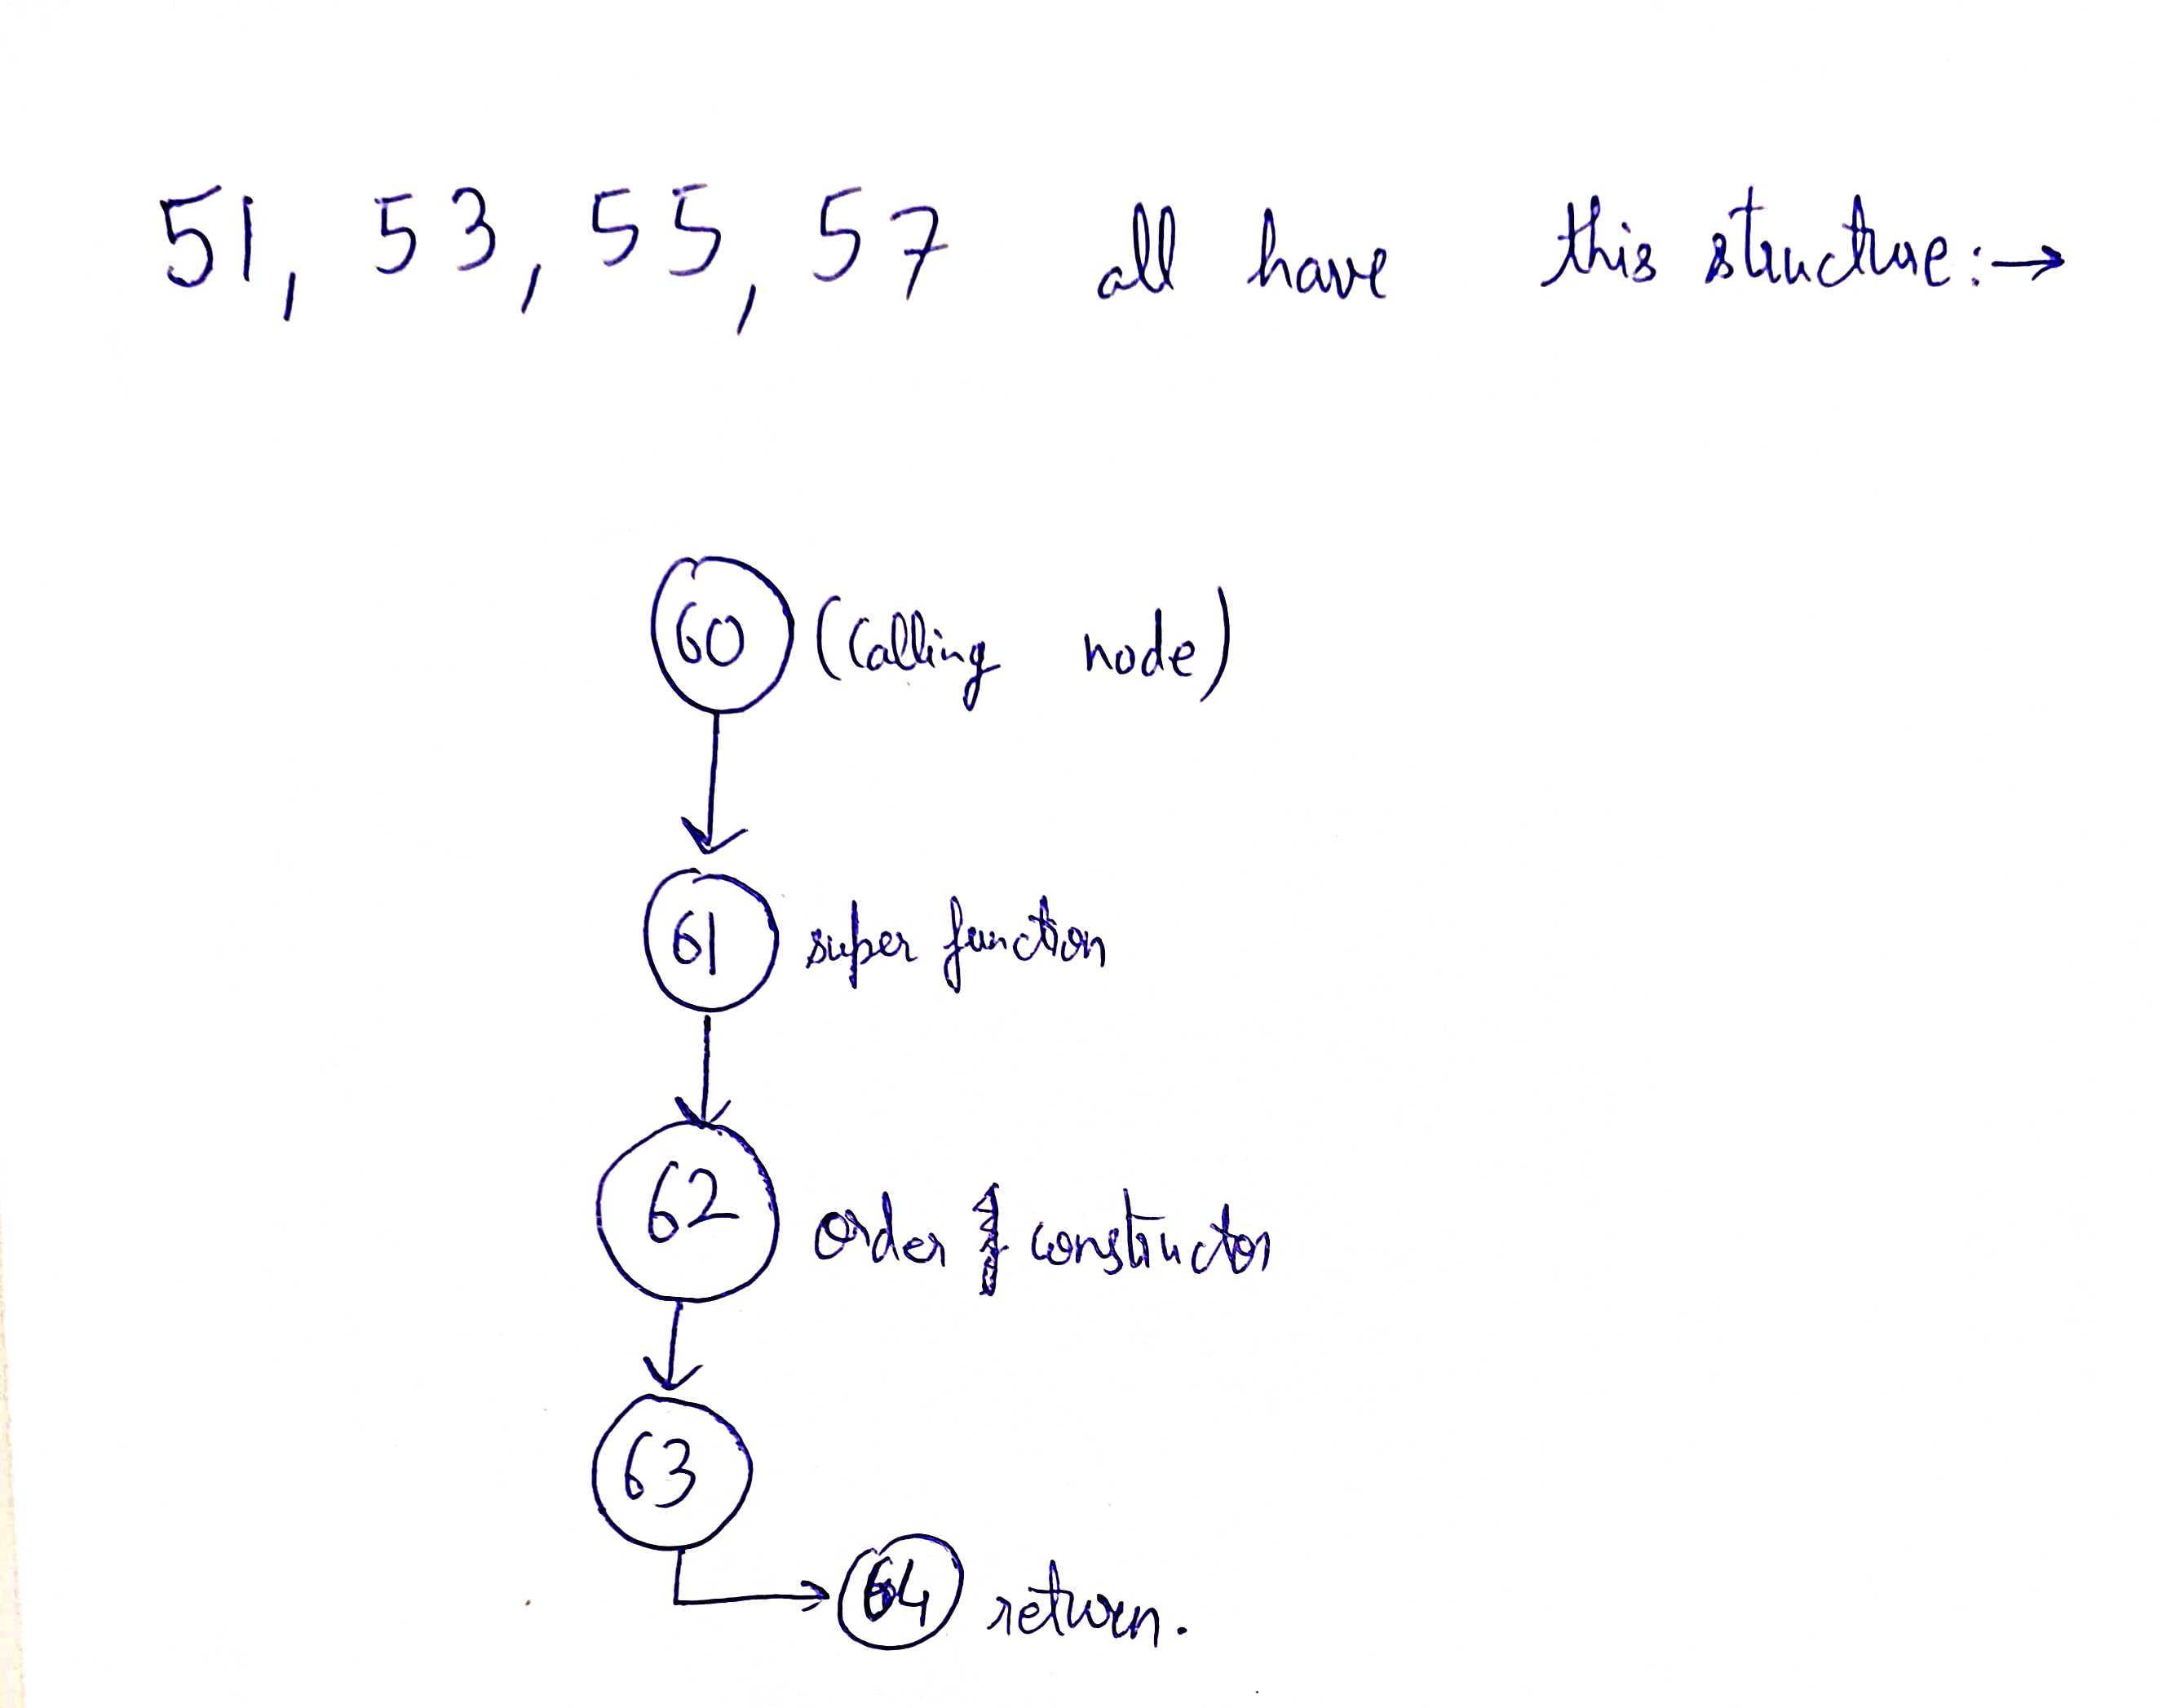 51, 53, 55, 57 all have this structure:→
60 (Calling node)
61 super function
62 order constructor
63
64 return.